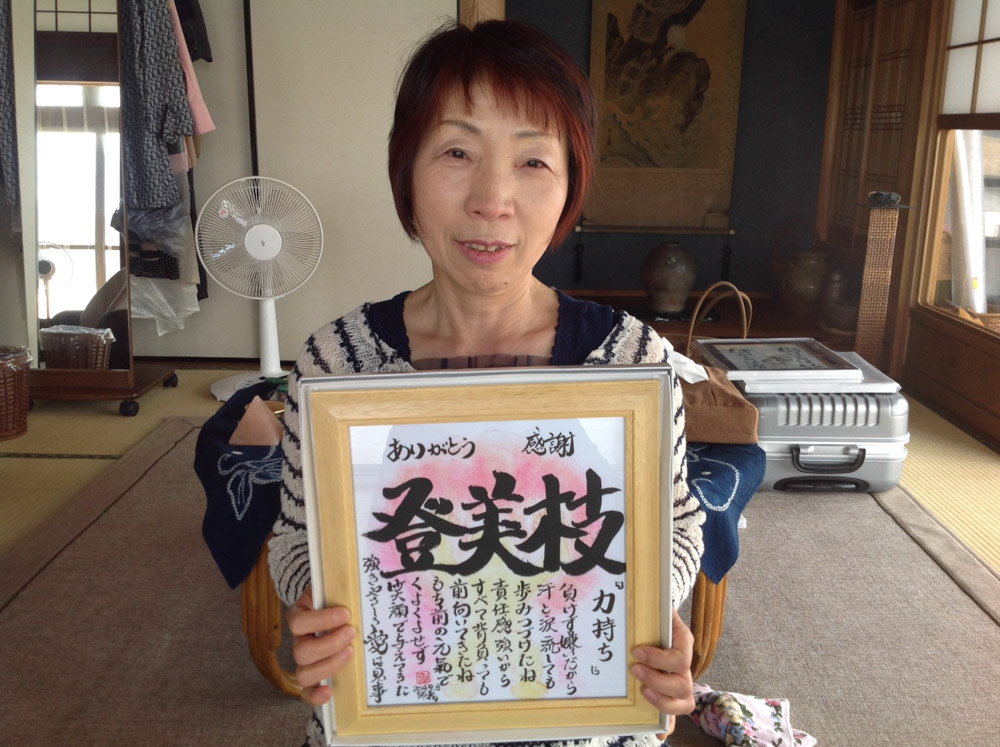 ありがとう
感謝
登美枝
『力持ち』
負けず嫌いだから
汗と涙流しても
歩みつづけたね
責任感強いから
すべて背負っても
前向いてきたね
もち前の元気で
くよくよせず
笑顔で与えてきた
強きやさしき愛は見事